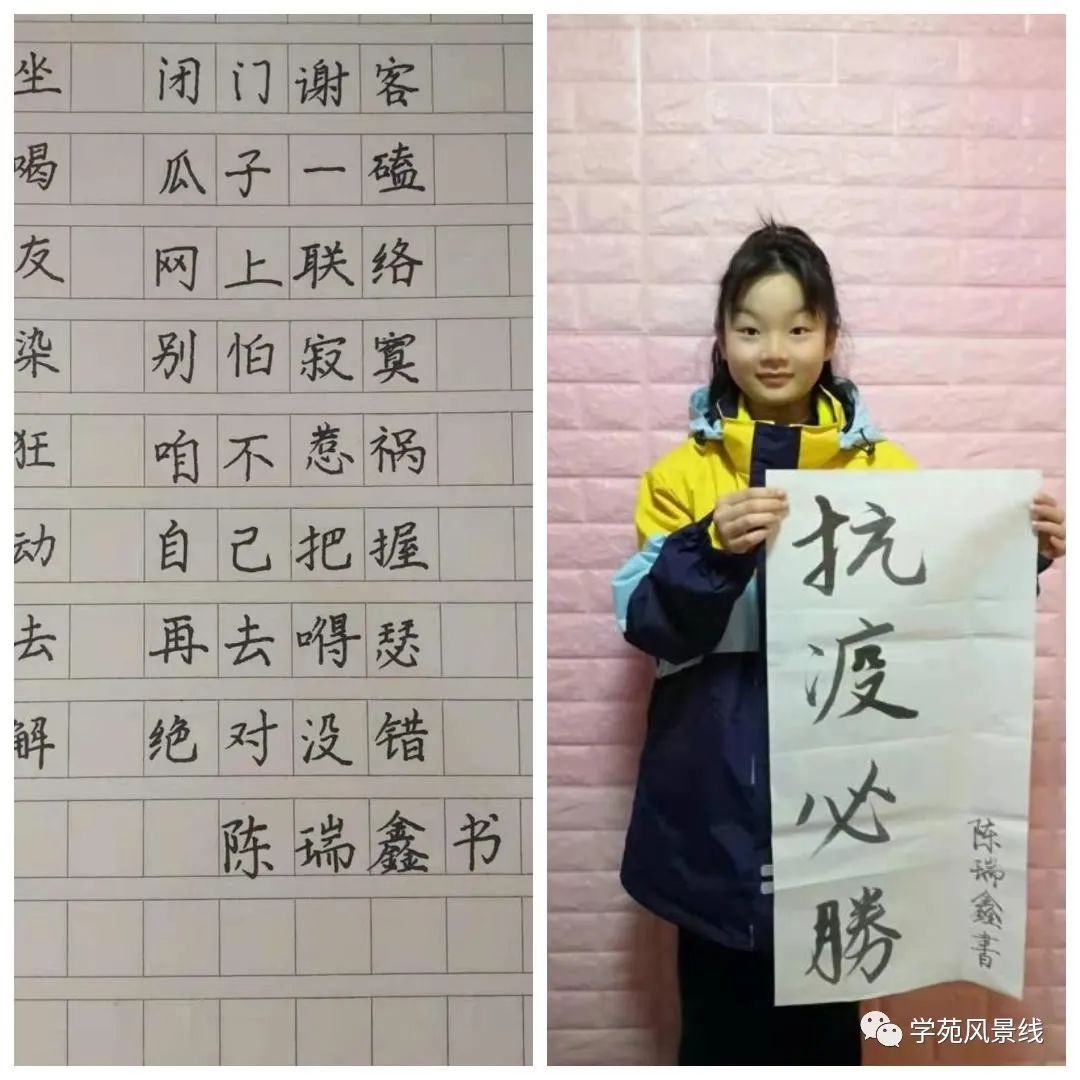 坐 闭门谢客
喝 瓜子一磕
友 网上联络
染 别怕寂寞
狂 咱不惹祸
动 自己把握
去 再去嘚瑟
解 绝对没错
陈瑞鑫书
抗疫必勝
陈瑞鑫書
学苑风景线